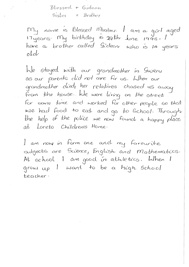 Blessed - Sister
Sidon - Brother
My name is Blessed I am a girl aged
years. My birthday is 30th June I
have a brother called who is 14 years
old.
We stayed with our grandmother in
as our parents did not care for us. When our
grandmother died her relatives chased us away
from the house. We were living on the street
for some time and worked for other people so that
we had food to eat and go to school. Through
the help of the police we now found a happy place
at Loreto Childrens Home.
I am now in form one and my favourite
subjects are Science, English and Mathematics.
At school I am good in athletics. When I
grow up I want to be a high school
teacher.